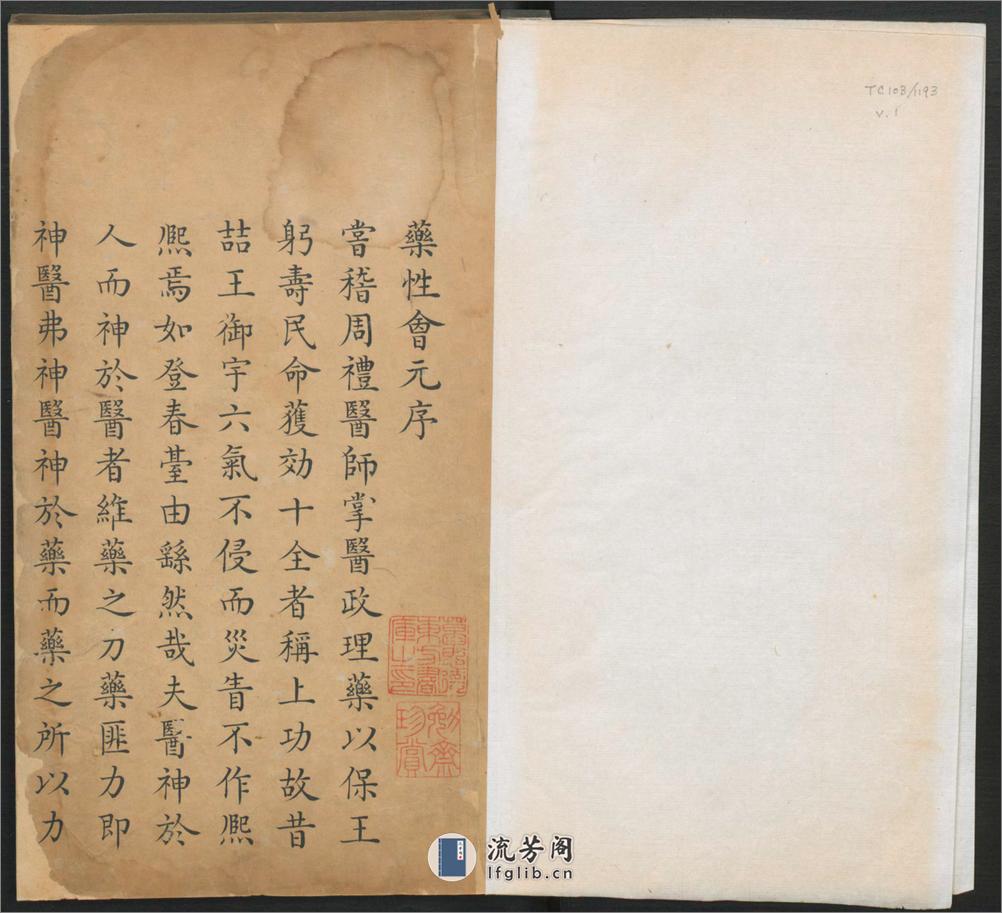 藥性會元序
嘗稽周禮醫師掌醫政理藥以保王
躬壽民命獲効十全者稱上功故昔
喆王御宇六氣不侵而災眚不作熈
熈焉如登春臺由繇然哉夫醫神於
人而神於醫者維藥之力藥匪力即
神醫弗神醫神於藥而藥之所以力
勉齋
珍賞
TC103/1193
v. 1
流芳阁
lfglib.cn